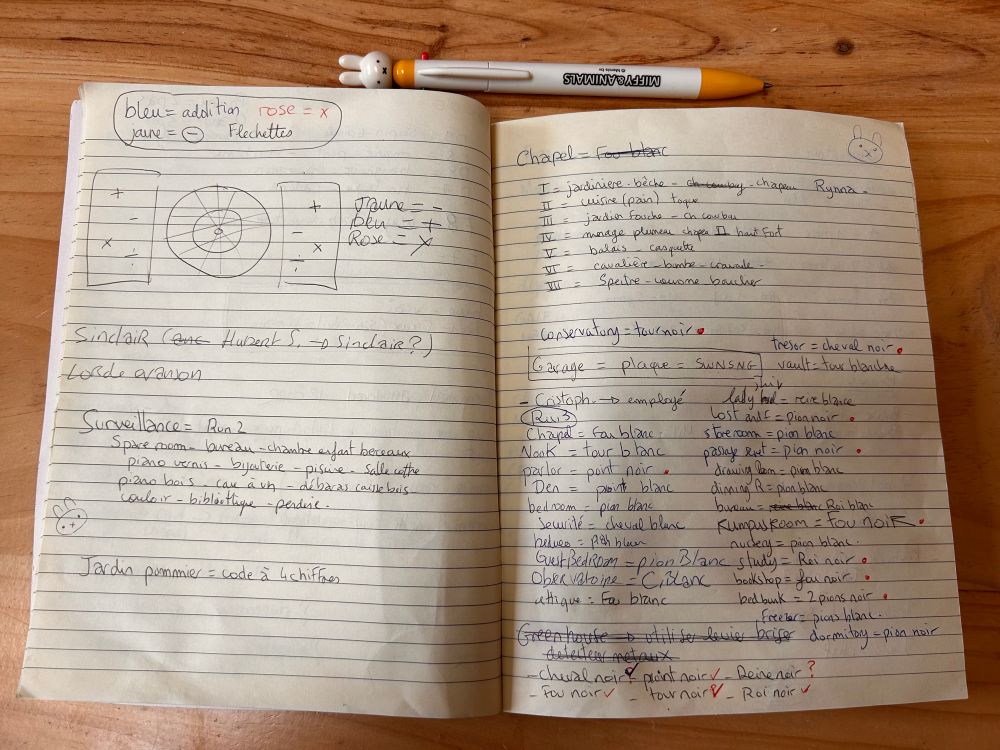 MIFFY&ANIMALS
bleu = addition rose = x
jaune = - Flechettes
+
-
x
÷
+
-
x
÷
Jaune = -
bleu = +
Rose = x
SinclaiR ( Hubert S. → Sinclair?)
Surveillance = Run 2
Spare room - bureau - chambre enfant berceaux
piano vernis - bijouterie - piscine - Salle coffre
piano bois - cave à vin - débaras caisse bois -
couloir - bibliothèque - penderie.
Jardin pommier = code à 4 chiffres
Chapel = Fou blanc
I = jardinière - bêche - ch cowboy - chapeau Rynna -
II = cuisine (pain) toque
III = jardin fauche - ch cowboy
IV = menage plumeau chapea II haut fort
V = balais - casquette
VI = cavalière - bombe - cravade -
VII = Spectre - couronne boucher
Conservatory = tour noir
tresor = cheval noir
Garage = plaque = SWNSNG
vault = tour blanche
- Cristoph. → employé
lady = reine blance
Run 3
lost and f = pion noir
Chapel = Fou blanc
store room = pion blanc
Nook = tour blanc
passage = pion noir
parlor = point noir
drawing Room = pion blanc
Den = point blanc
dinning R = pion blanc
bedroom = pion blanc
bureau = Roi blanc
Securité = cheval blanc
RUMPUS ROOM = FOU NOIR
= pion blanc
nuckery = pion blanc
GuestBedRoom = pion Blanc
study = Roi noir
Observatoire = C. Blanc
bookshop = fou noir
attique = Fou blanc
bedbunk = 2 pions noir
Freezer = pions blanc
Greenhouse → utiliser levier brisé
dormitoy = pion noir
detecteur metaux
- cheval noir ✓ - point noir ✓ - Reine noir ?
- Fou noir ✓ - tour noir ✓ - Roi noir ✓